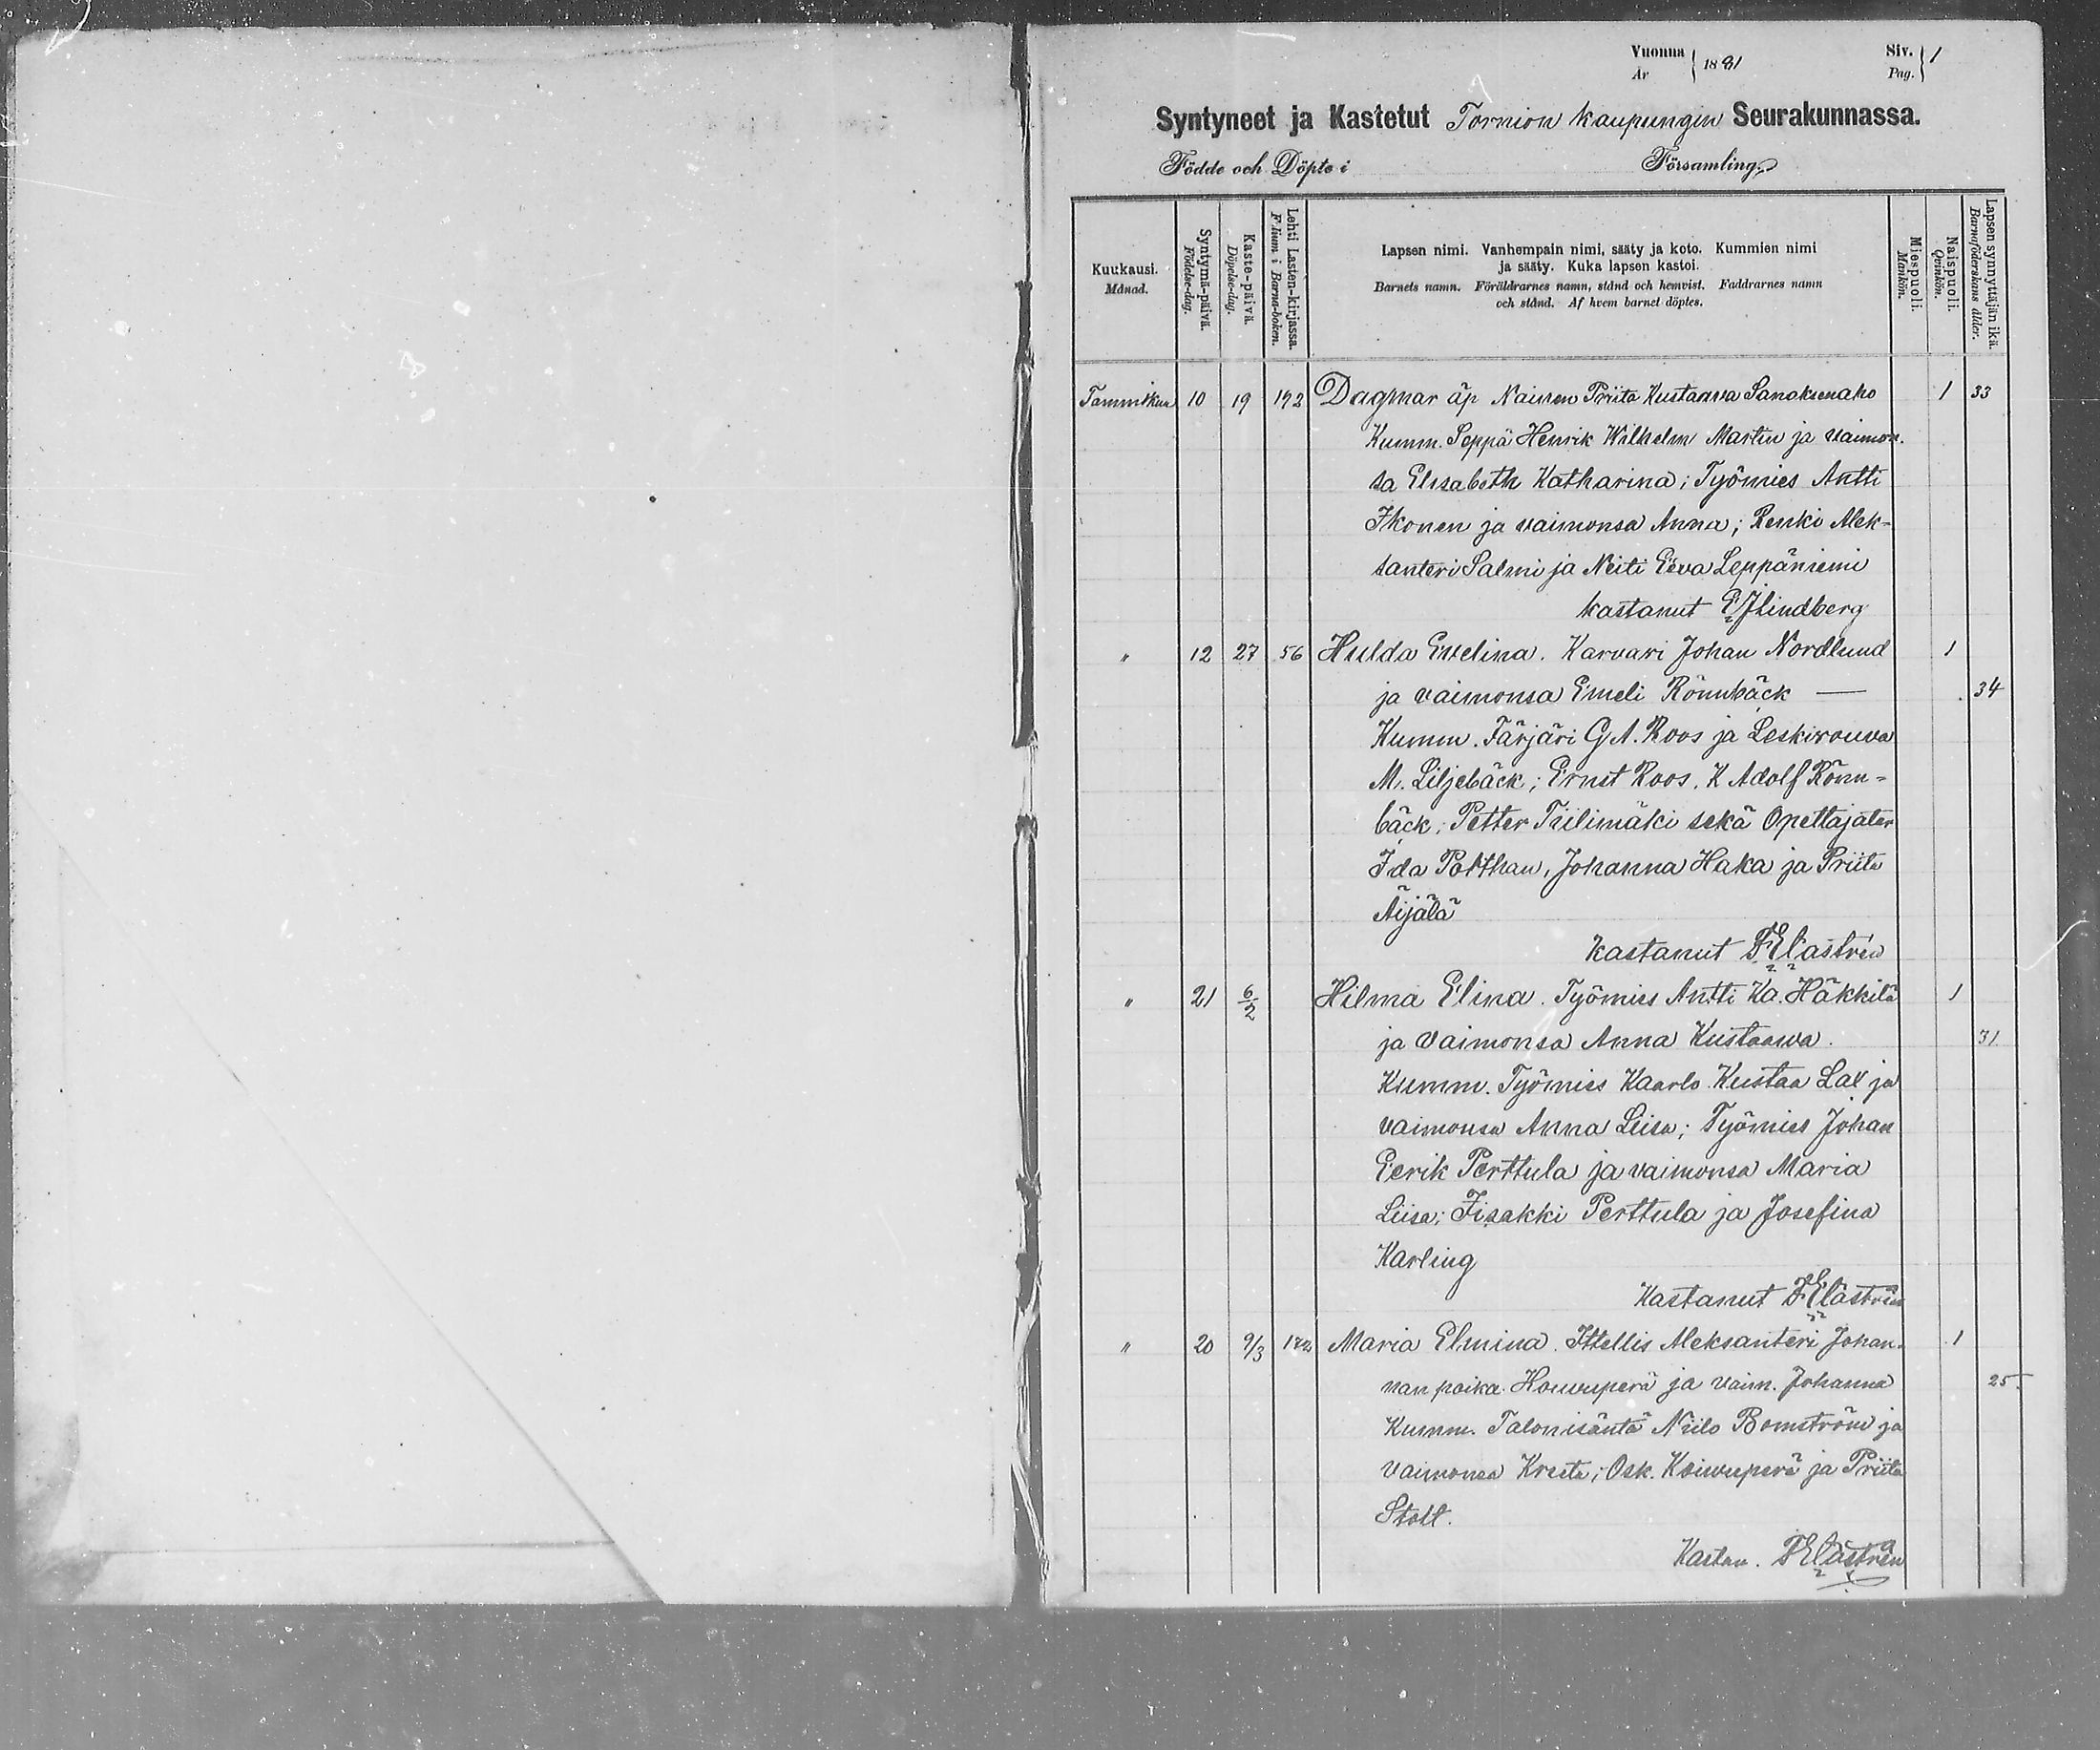 Vuonna Siv.
År 1881 Pag. 1
Syntyneet ja Kastetut Tornion kaupungin Seurakunnassa.
Födde och Döpte i Församling.
Kuukausi. Månad.
Syntymä-päivä. Födelse-dag.
Kaste-päivä. Döpelse-dag.
Lehti Lasten-kirjassa. Folium i Barna-boken.
Lapsen nimi. Vanhempain nimi, sääty ja koto. Kummien nimi
ja sääty. Kuka lapsen kastoi.
Barnets namn. Föräldrarnes namn, stånd och hemvist. Faddrarnes namn
och stånd. Af hvem barnet döptes.
Miespuoli. Mankön.
Naispuoli. Qvinkön.
Lapsen synnyttäjän ikä. Barnaföderskans ålder.
Tammikuu 10 19 192 Dagmar äp Naisen Priita Kustaava Sanoksenaho 1 33
Kumm. Seppä Henrik Wilhelm Martin ja vaimon-
sa Elisabeth Katharina; Työmies Antti
Ikonen ja vaimonsa Anna; Renki Alek-
santeri Salmi ja Neiti Eeva Leppäniemi
kastanut E J Lindberg
" 12 27 56 Hulda Evelina. Karvari Johan Nordlund 1
ja vaimonsa Emeli Rönnbäck — 34
Kumm. Färjäri G A. Roos ja Leskirouva
M. Liljebäck; Ernst Roos. K Adolf Rönn-
bäck; Petter Tiilimäki sekä Opettajatar
Ida Polthan, Johanna Haka ja Priita
Äijälä
kastanut F E Castrén
" 21 6/2 Hilma Elina. Työmies Antti Ka. Häkkilä 1
ja vaimonsa Anna Kustaava. 31
Kumm. Työmies Kaarlo Kustaa Lax ja
vaimonsa Anna Leisa; Työmies Johan
Eerik Perttula ja vaimonsa Maria
Liisa; Iisakki Perttula ja Josefina
Karling
Kastanut F E Castrén
" 20 9/3 Maria Elmina. Ittellis Aleksanteri Johan- 1
nan poika Koivuperä ja vaim. Johanna 25
Kumm. Talonisäntä Niilo Bomström ja
vaimonsa Kreeta; Osk. Koivuperä ja Priita
Stolt.
Kastan. F E Castrén